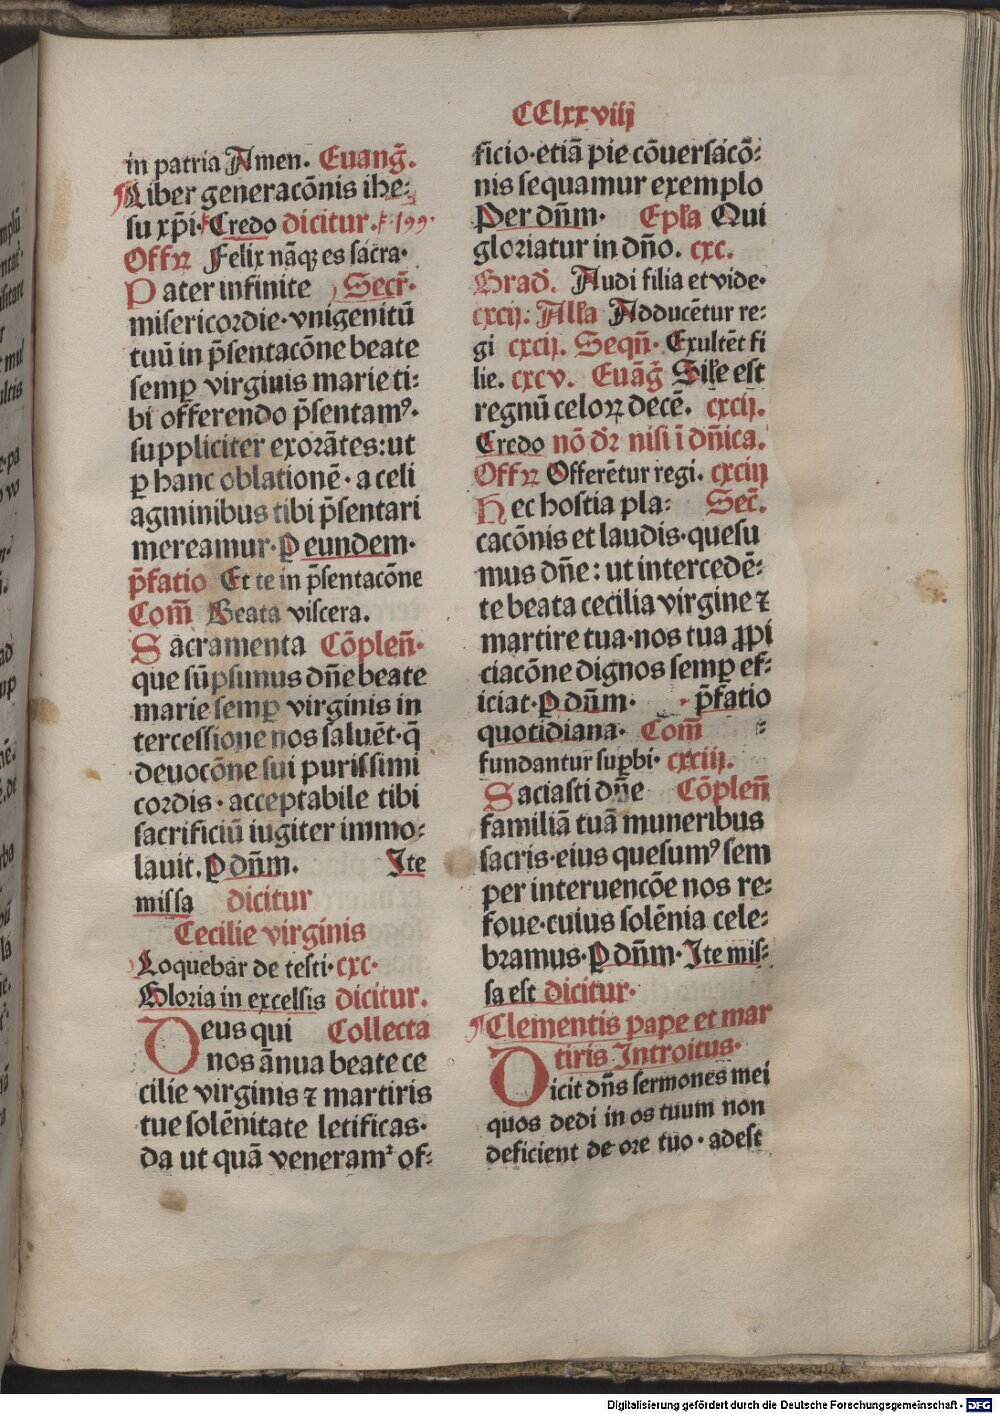 CClxxviiij
in patria Amen. Euang̃.
Liber generacōnis ihe-
su xp̄i. Credo dicitur. f 199.
Offꝝ Felix nāqꝫ es sacra.
Pater infinite Secr̄.
misericordie·vnigenitū
tuū in p̄sentacōne beate
semꝑ virginis marie ti:
bi offerendo p̄sentamꝰ.
suppliciter exorātes:ut
ꝑ hanc oblationē·a celi
agminibus tibi p̄sentari
mereamur·P eundem.
p̄fatio Et te in p̄sentacōne
Com̄ Beata viscera.
Sacramenta Cōplen̄.
que sūpsimus dn̄e beate
marie semꝑ virginis in
tercessione nos saluēt·q̄
deuocōne sui purissimi
cordis·acceptabile tibi
sacrificiū iugiter immo:
lauit.P dn̄m. Ite
missa dicitur
Cecilie virginis
Loquebar de testi·cxc.
Gloria in excelsis dicitur.
Deus qui Collecta
nos ānua beate ce
cilie virginis ⁊ martiris
tue solēnitate letificas.
da ut quā veneramᷣ of:
ficio·etiā pie cōuersacō:
nis sequamur exemplo
Per dn̄m. Ep̄la Qui
gloriatur in dn̄o. cxc.
Grad̄. Audi filia et vide.
cxcij. All̄a Adducētur re:
gi cxcij. Seqn̄. Exultēt fi
lie. cxcv. Euāg̃ Sil̄e est
regnū celoꝝ decē. cxcij.
Credo nō dr̄ nisi ī dn̄ica.
Offꝝ Offerētur regi. cxciij
Hec hostia pla: Sec̄.
cacōnis et laudis·quesu
mus dn̄e: ut intercedē:
te beata cecilia virgine ⁊
martire tua·nos tua ꝓpi
ciacōne dignos semꝑ ef:
iciat·P dn̄m. p̄fatio
quotidiana. Com̄
fundantur suꝑbi. cxciij.
Saciasti dn̄e Cōplen̄
familiā tuā muneribus
sacris·eius quesumꝰ sem
per interuencōe nos re:
foue·cuius solēnia cele:
bramus·P dn̄m·Ite mis:
sa est dicitur.
Clementis pape et mar
tiris Introitus.
Dicit dn̄s sermones mei
quos dedi in os tuum non
deficient de ore tuo·adest
Digitalisierung gefördert durch die Deutsche Forschungsgemeinschaft - DFG